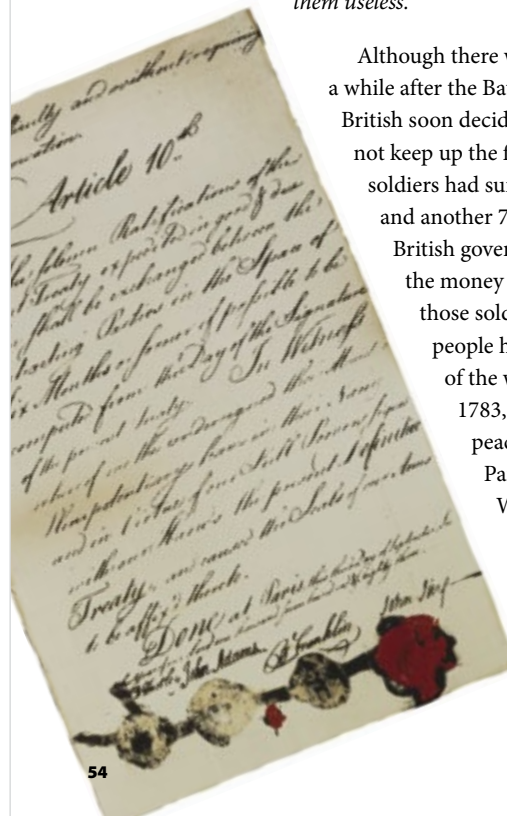 them useless.
Although there w
a while after the Ba
British soon decid
not keep up the f
soldiers had su
and another 7
British gover
the money
those sold
people h
of the w
1783,
peac
Pa
W
culty and without requiring
Article 10.th
solemn Ratifications of the
t Treaty expedited in good & due
shall be exchanged between the
tracting Parties in the Space of
ix Months or sooner if possible to be
computed from the Day of the Signature
of the present Treaty. In Witness
whereof we the undersigned their
Plenipotentiary have in their Name
and in Virtue of our Full Powers
with our Hands the present Definitive
Treaty, and caused the Seals of our Arms
to be affix'd thereto.
Done at Paris this third day of September
John Adams
B Franklin
John Jay
54